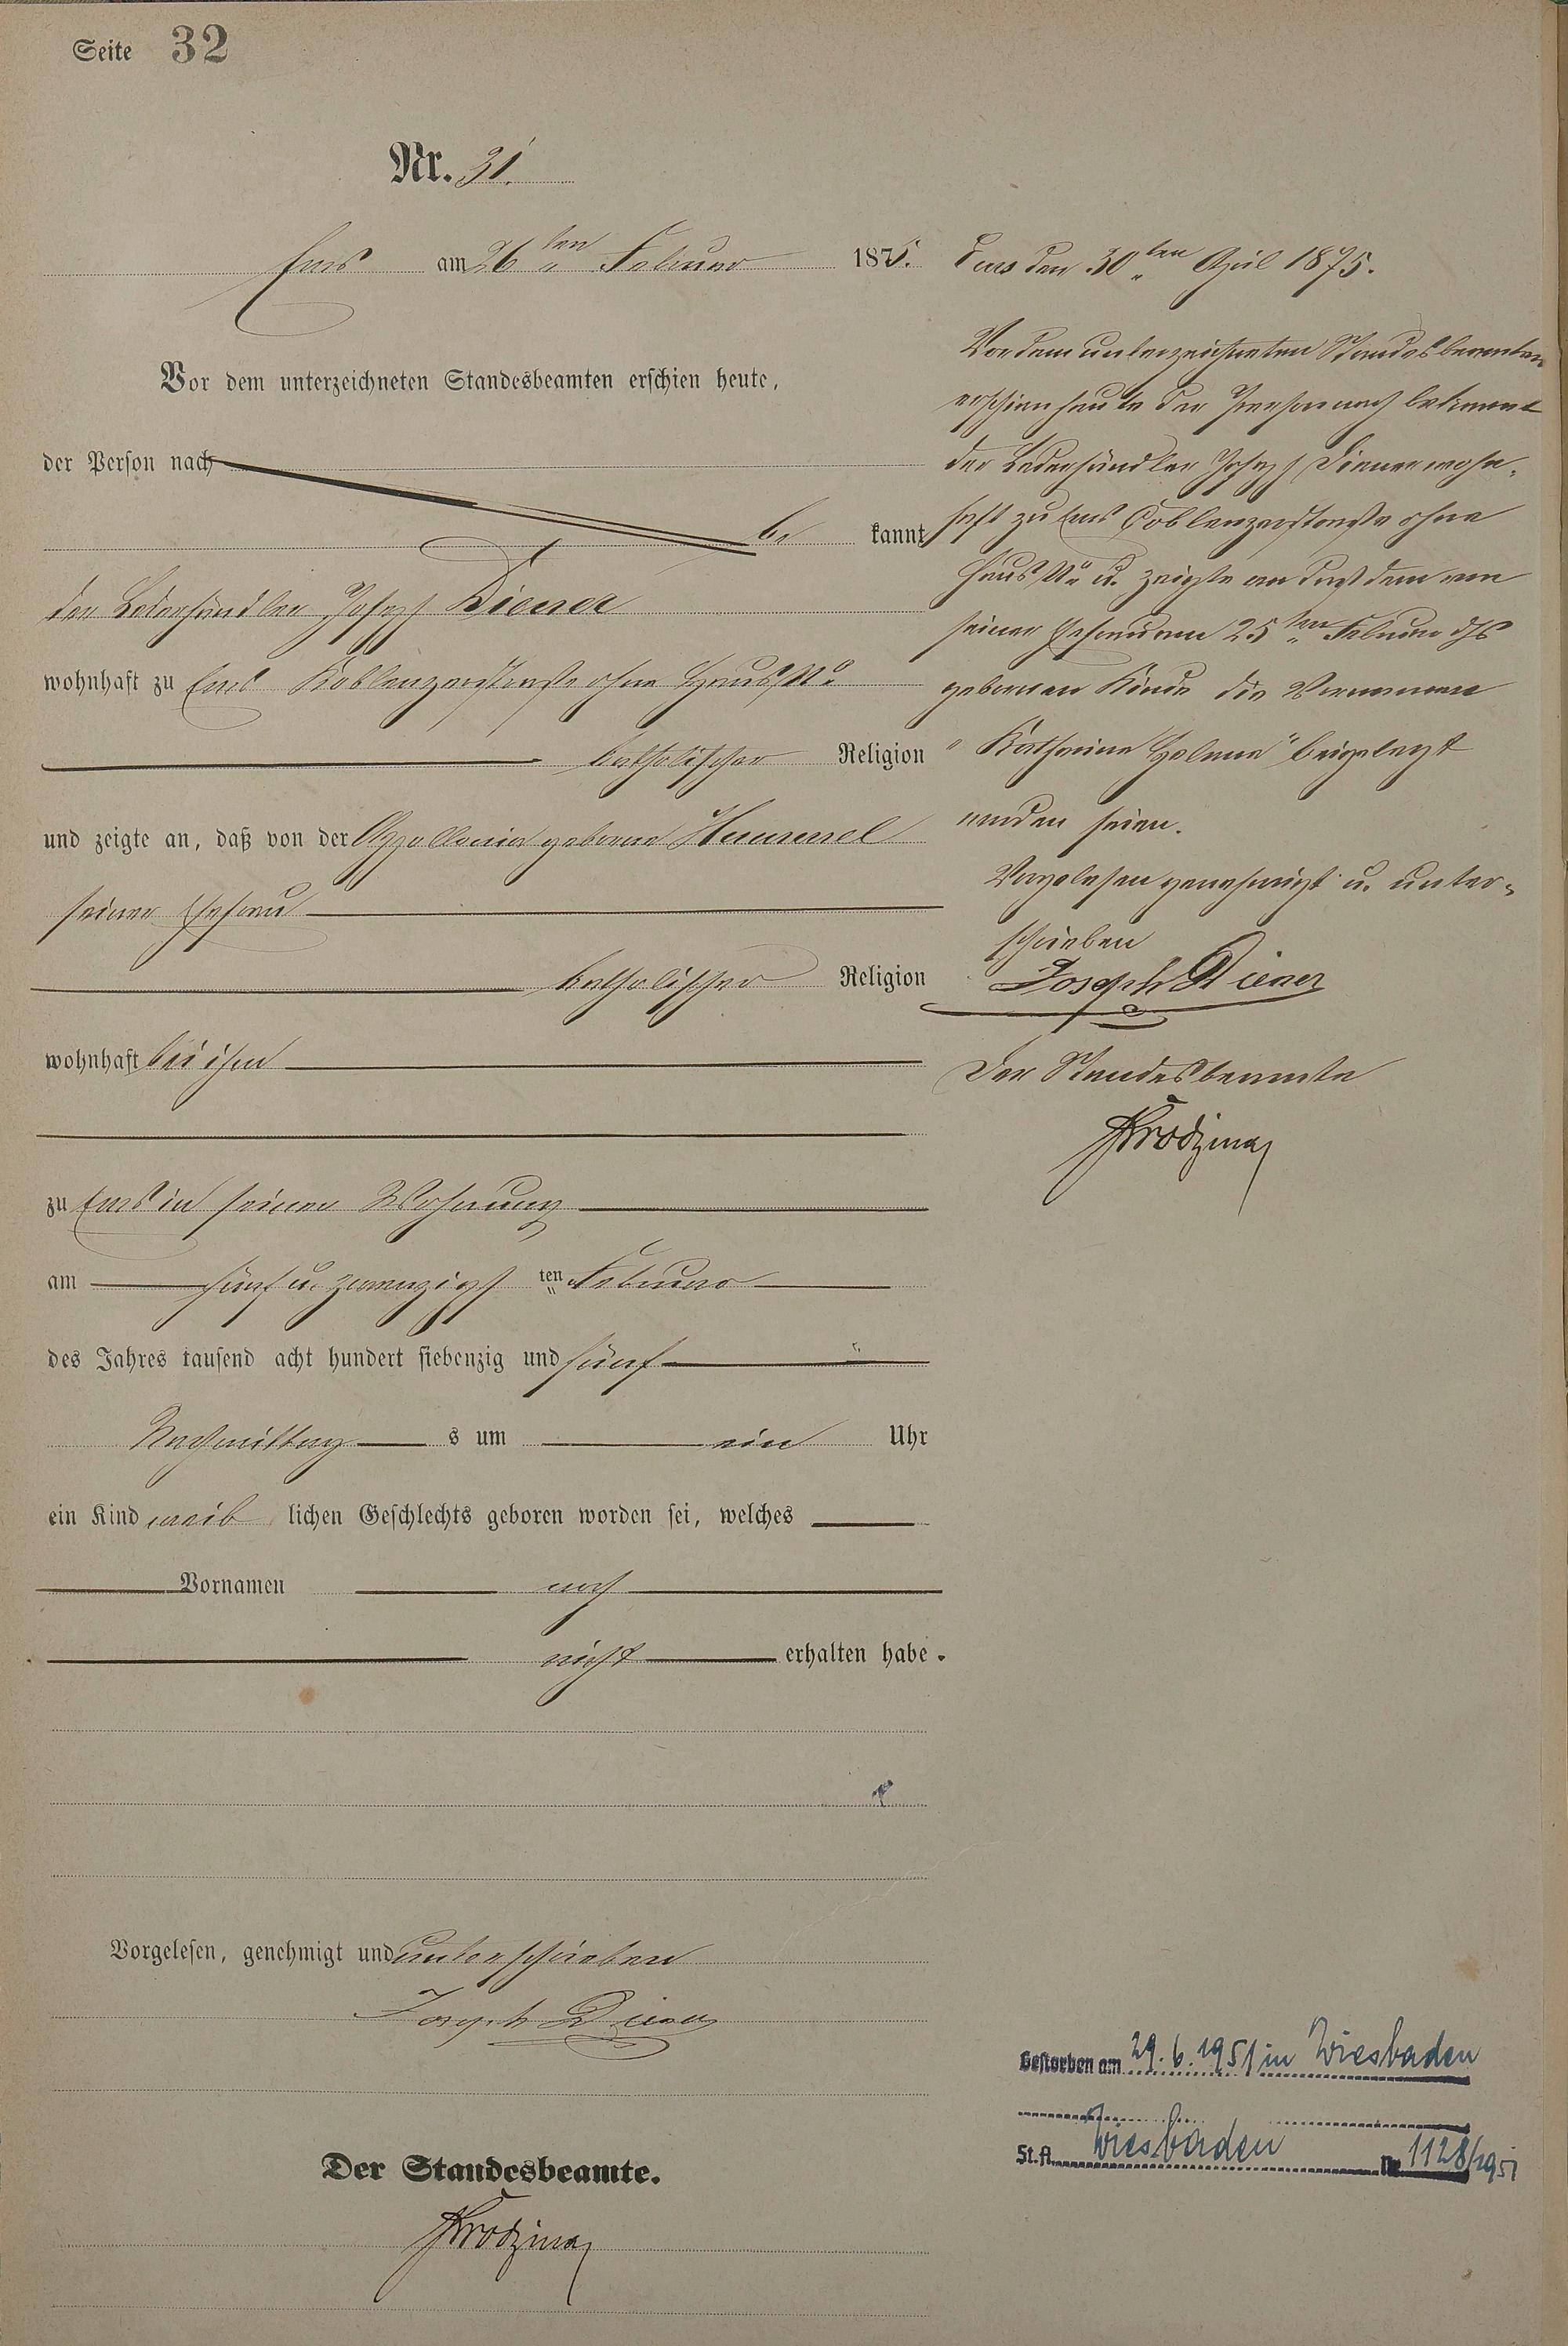 Seite 32
Nr. 31.
Ems am 26ten Februar 1875.
Vor dem unterzeichneten Standesbeamten erschien heute,
der Person nach
be kannt
der Lederhändler Joseph Diener
wohnhaft zu Ems Koblenzerstraße ohne Haus No
katholischer Religion
und zeigte an, daß von der Appollonia geborne Hummel
seiner Ehefrau
katholischer Religion
wohnhaft bei ihm
zu Ems in seiner Wohnung
am fünf u. zwanzigsten Februar
des Jahres tausend acht hundert siebenzig und fünf
Nachmittag s um ein Uhr
ein Kind weib lichen Geschlechts geboren worden sei, welches
Vornamen noch
nicht erhalten habe.
Vorgelesen, genehmigt und unterschrieben
Joseph Diener
Der Standesbeamte.
Ems den 30ten April 1875.
Vor dem unterzeichneten Standesbeamten
erschien heute der Person nach bekannt
der Lederhändler Joseph Diener wohn-
haft zu Ems Coblenzerstraße ohne
Haus No u. zeigte an daß dem von
seiner Ehefrau am 25ten Februar ds
gebornen Kinde die Vornamen
"Katharina Helena" beigelegt
worden seien.
Vorgelesen genehmigt u. unter-
schrieben
Joseph Diener
Der Standesbeamte
Gestorben am 29.6.1951 in Wiesbaden
St.A. Wiesbaden Nr. 1128/1951